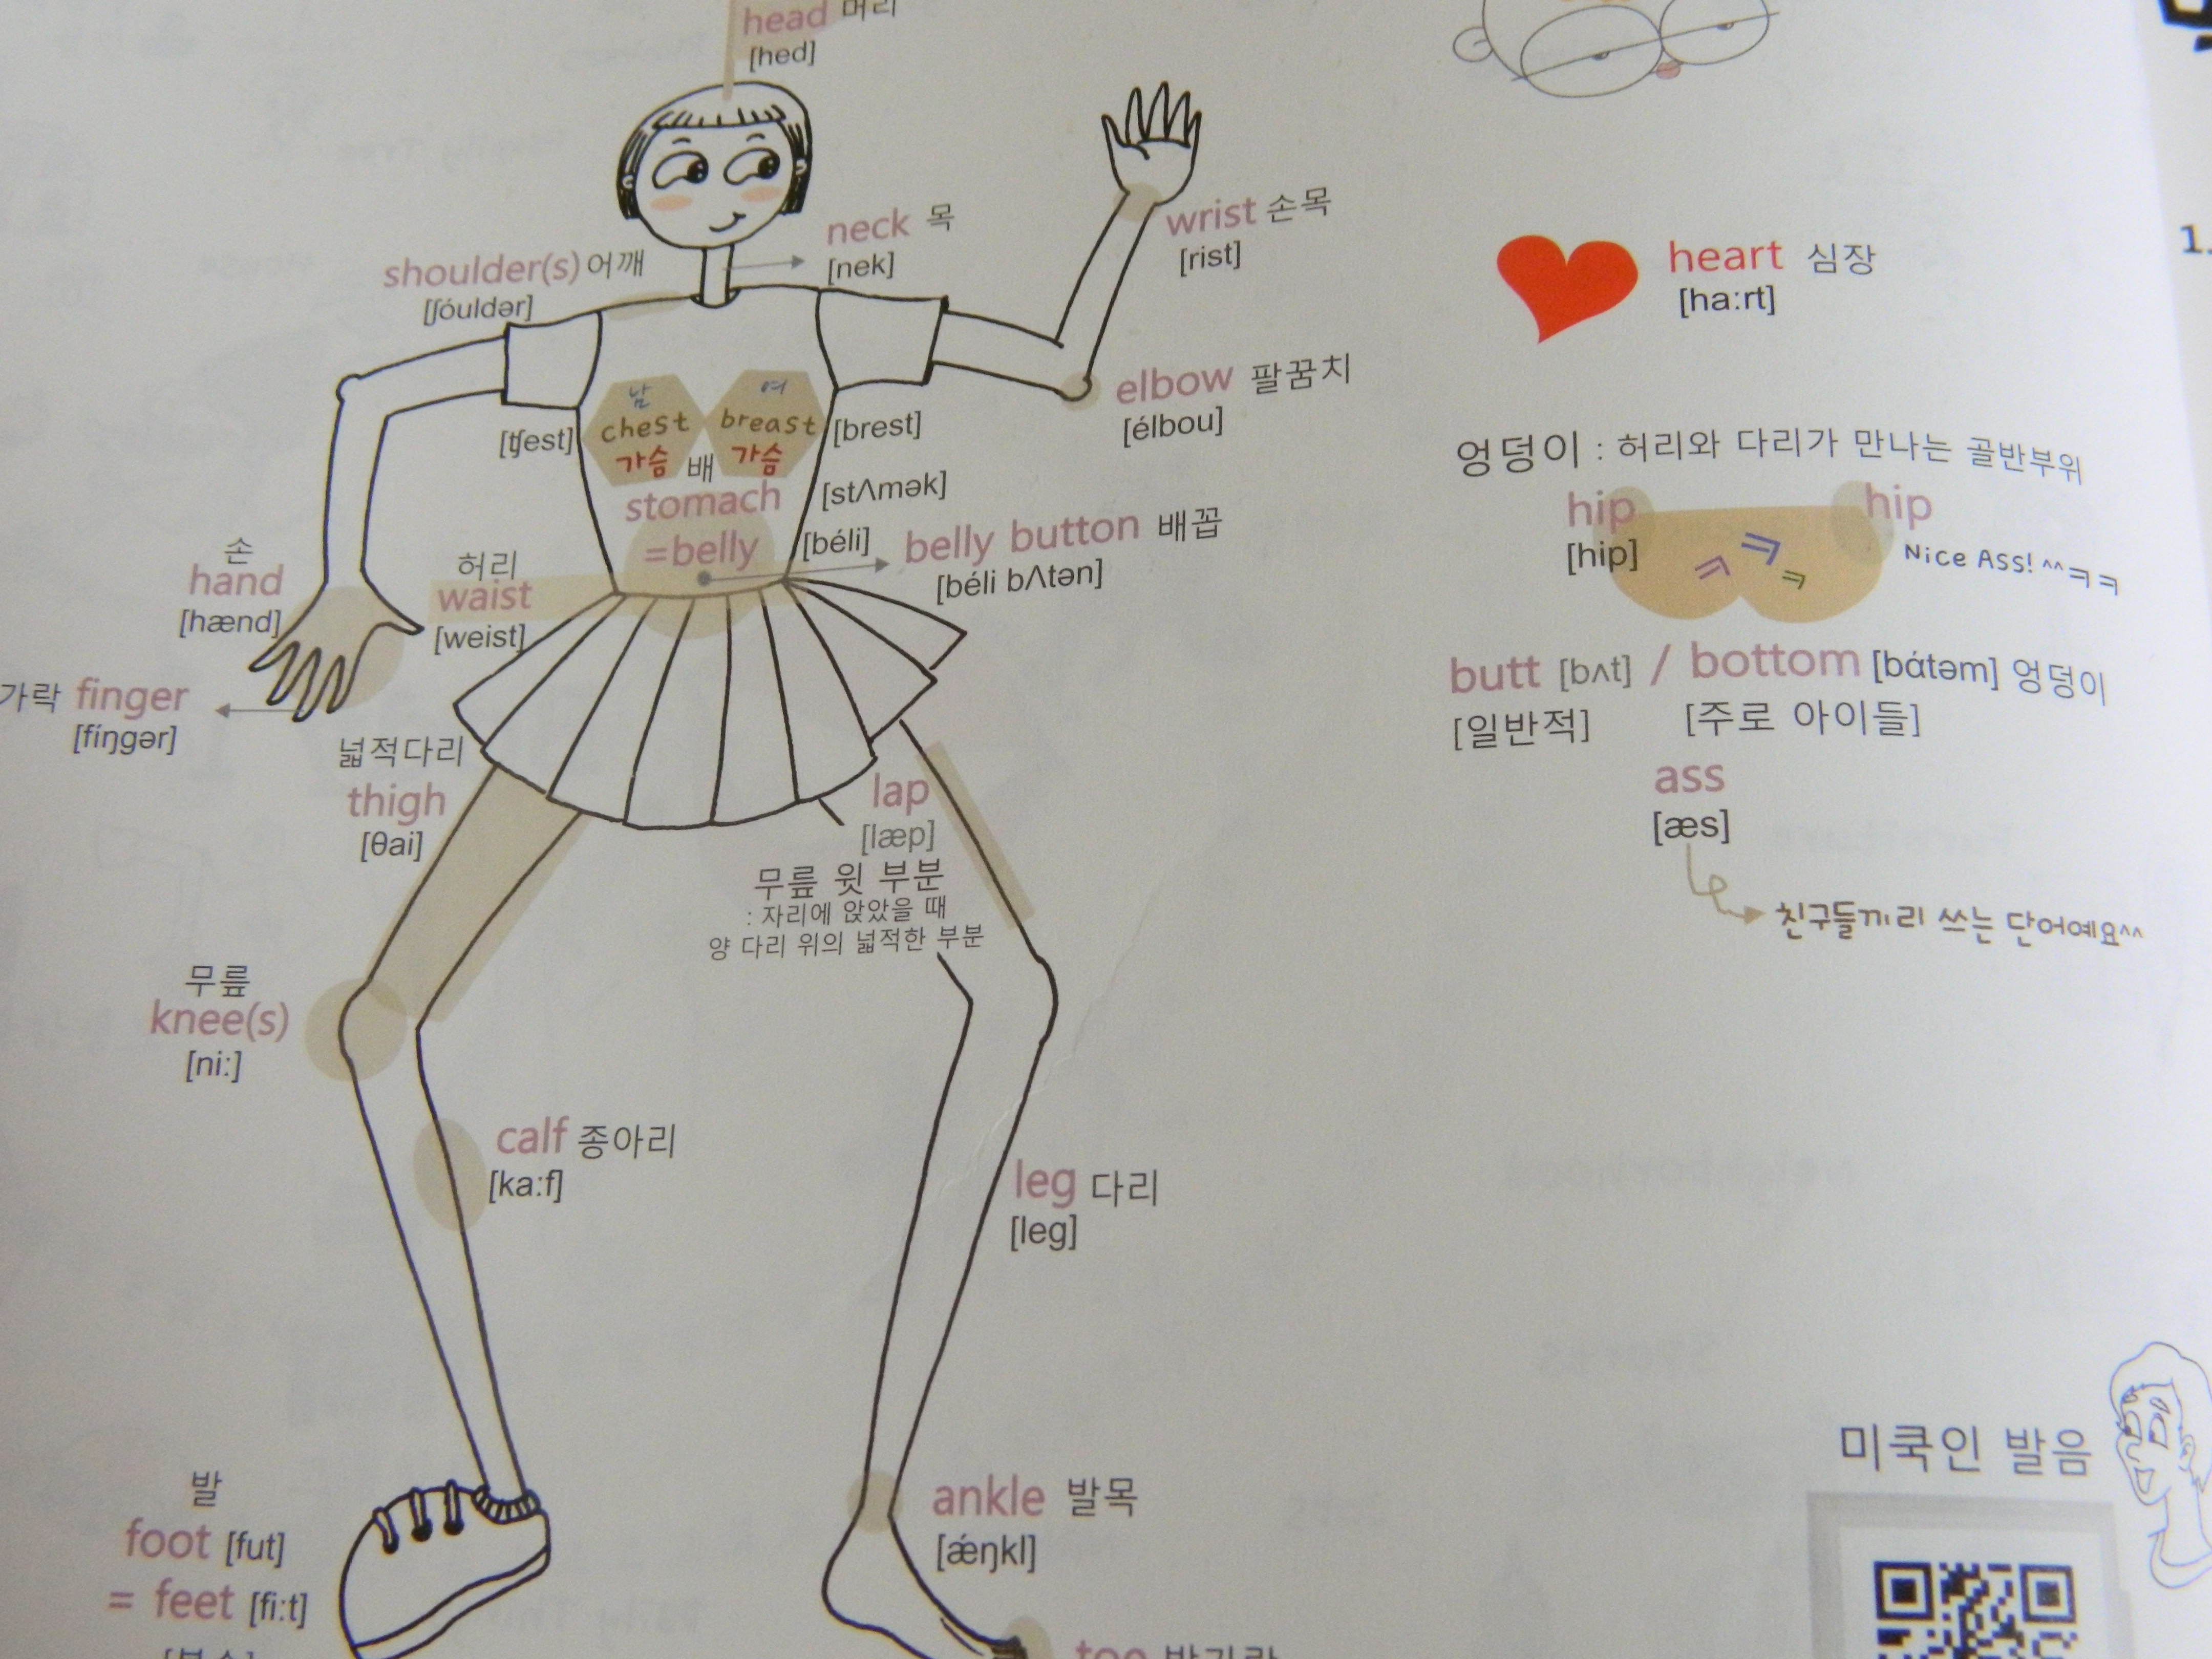 head 머리
[hed]
neck 목
[nek]
shoulder(s) 어깨
[ʃóuldər]
wrist 손목
[rist]
elbow 팔꿈치
[élbou]
남
chest
가슴
[tʃest]
여
breast
가슴
[brest]
배
stomach
[stʌmək]
=belly
[béli]
belly button 배꼽
[béli bʌtən]
손
hand
[hænd]
허리
waist
[weist]
가락 finger
[fíŋgər]
넓적다리
thigh
[θai]
lap
[læp]
무릎 윗 부분
: 자리에 앉았을 때
양 다리 위의 넓적한 부분
무릎
knee(s)
[ni:]
calf 종아리
[ka:f]
leg 다리
[leg]
발
foot [fut]
= feet [fi:t]
ankle 발목
[ǽŋkl]
toe 발가락
heart 심장
[ha:rt]
엉덩이 : 허리와 다리가 만나는 골반부위
hip
[hip]
hip
ㅋ ㅋ ㅋ
Nice Ass! ^^ㅋㅋ
butt [bʌt] / bottom [bɑ́təm] 엉덩이
[일반적] [주로 아이들]
ass
[æs]
친구들끼리 쓰는 단어예요^^
미쿡인 발음
1.